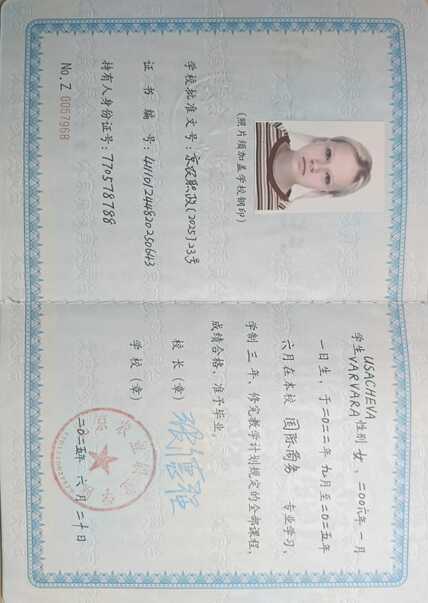 (照片须加盖学校钢印)
学校批准文号：京农职政(2025)23号
证 书 编 号：44101244820250643
持有人身份证号：770578788
No.Z 0057968
学生 USACHEVA VARVARA 性别 女 、二00六年 一 月
一日生，于二0二二年 九月至二0二五年
六月在本校 国际商务 专业学习，
学制 三 年，修完教学计划规定的全部课程，
成绩合格，准予毕业。
校 长（章）
学 校（章）
二0二五年 六 月 二十日